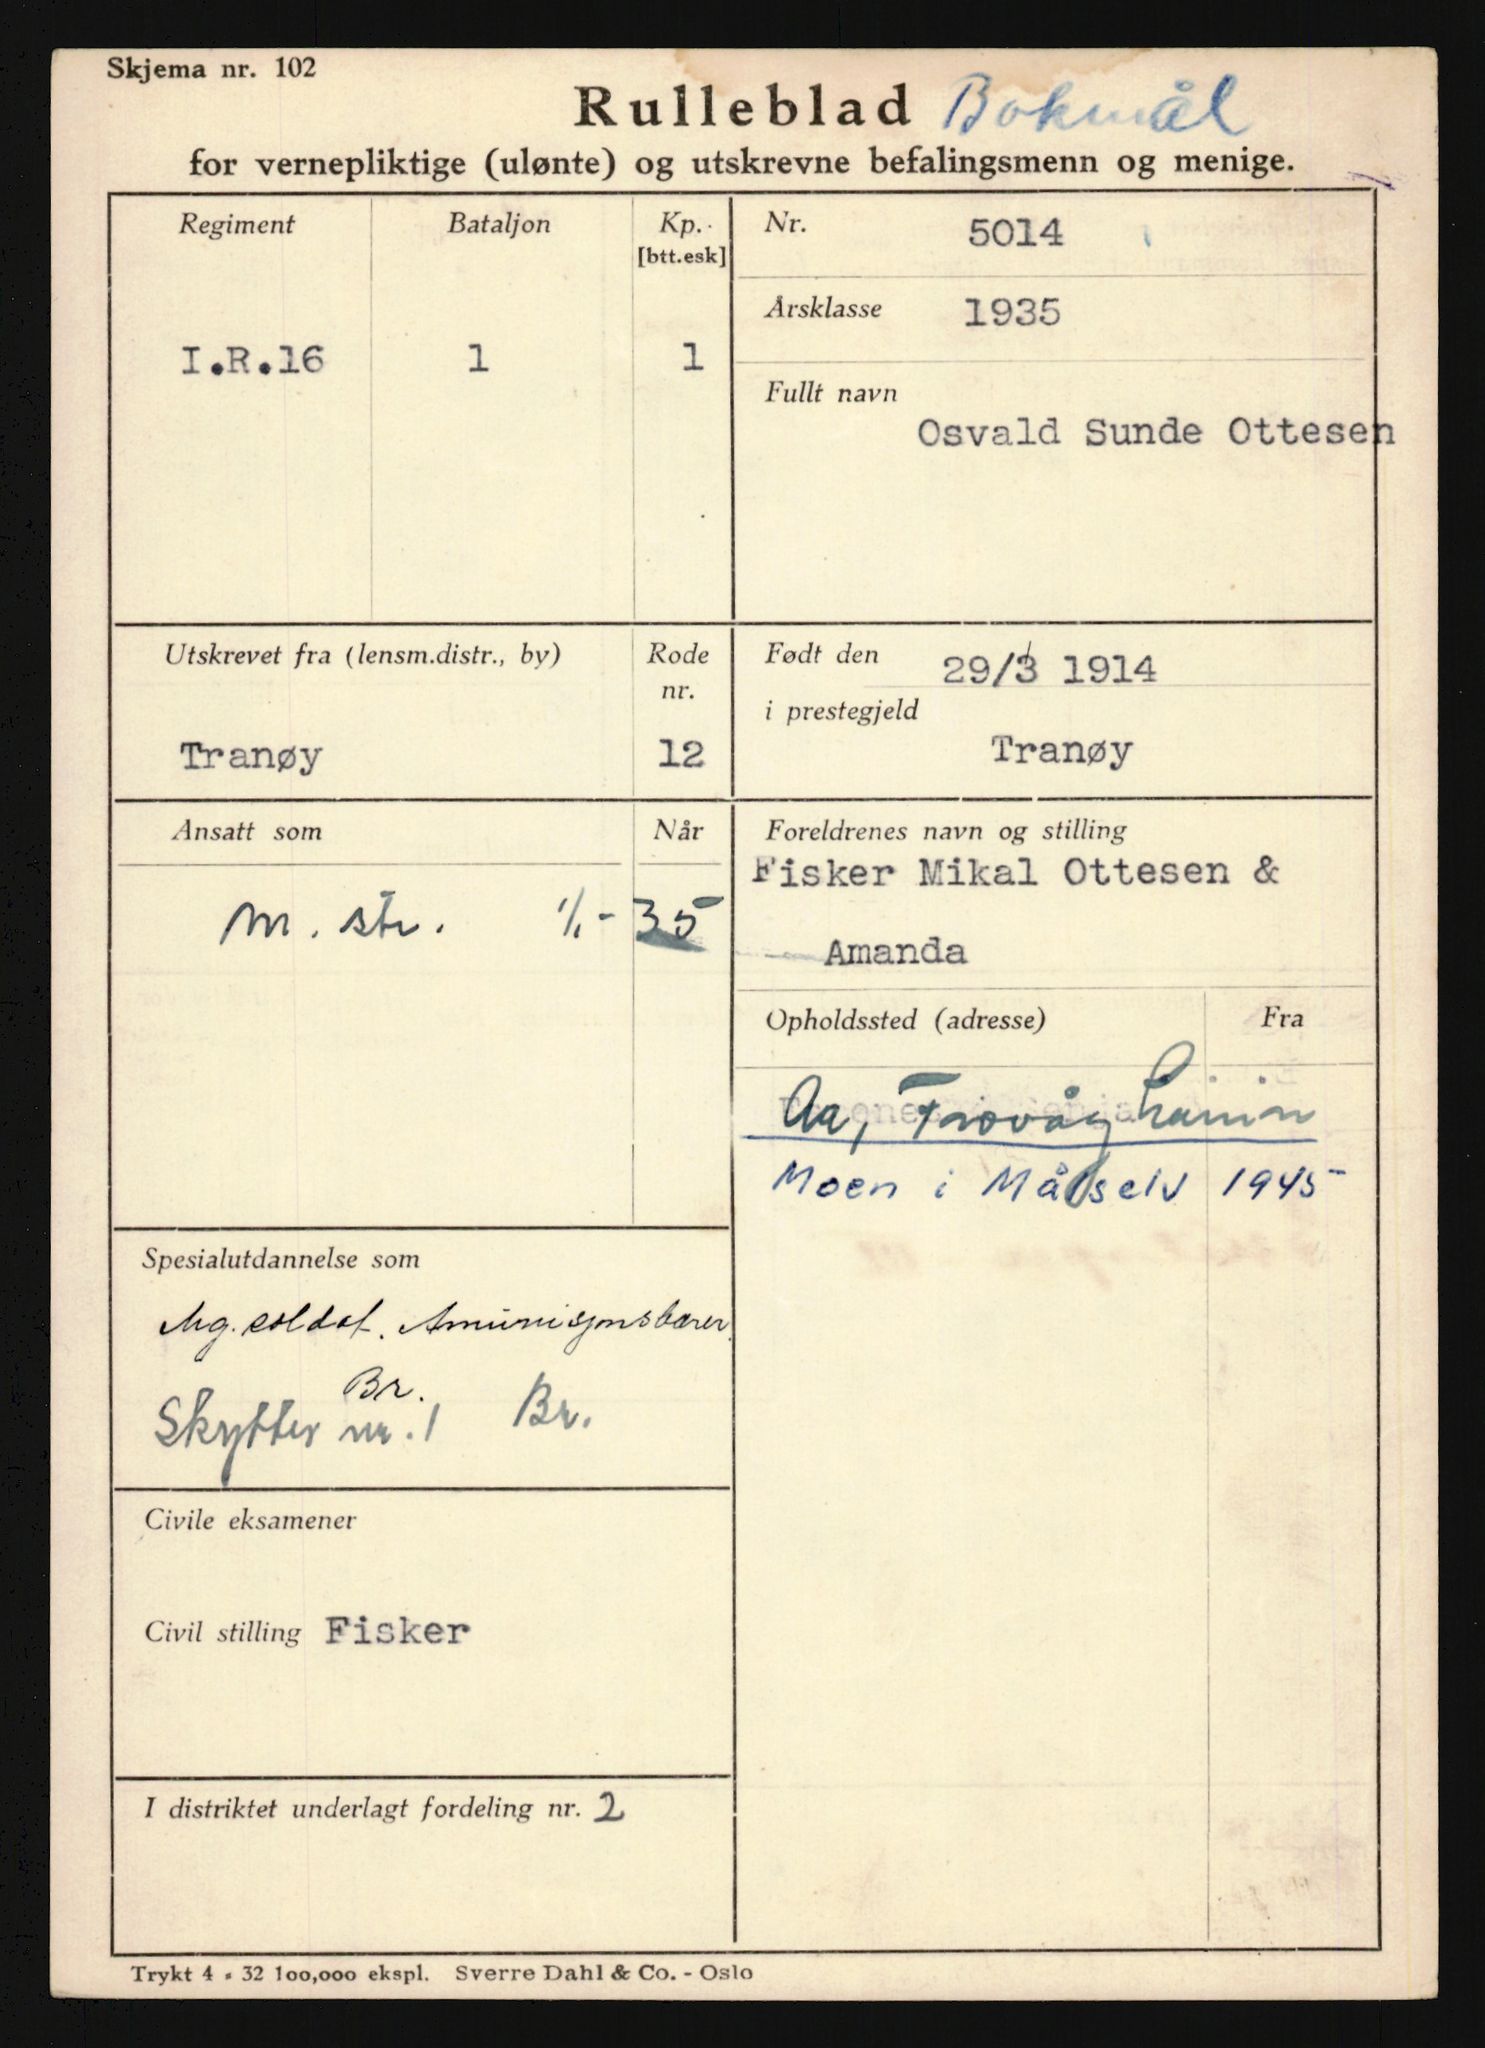 Skjema nr. 102
Rulleblad Bokmål
for vernepliktige (ulønte) og utskrevne befalingsmenn og menige.
Regiment Bataljon Kp. [btt.esk]
I.R.16 1 1
Nr. 5014
Årsklasse 1935
Fullt navn
Osvald Sunde Ottesen
Utskrevet fra (lensm.distr., by) Rode nr.
Tranøy 12
Født den 29/3 1914
i prestegjeld
Tranøy
Ansatt som Når
M. str. 1/1-35
Foreldrenes navn og stilling
Fisker Mikal Ottesen &
Amanda
Opholdssted (adresse) Fra
Aa, Frovåg
Moen i Målselv 1945
Spesialutdannelse som
Mg. soldat. Amunisjonsbærer
Br.
Skytter nr. 1 Br.
Civile eksamener
Civil stilling Fisker
I distriktet underlagt fordeling nr. 2
Trykt 4 - 32 100,000 ekspl. Sverre Dahl & Co. - Oslo